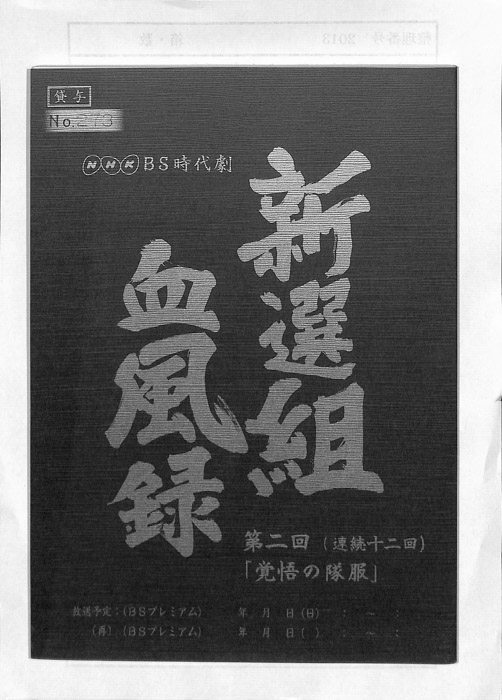 整理番号 2013 箱・数
貸与
No.273
NHK BS時代劇
新選組
血風録
第二回 (連続十二回)
「覚悟の隊服」
放送予定:(BSプレミアム) 年 月 日(日) : ~ :
(再) (BSプレミアム) 年 月 日( ) : ~ :